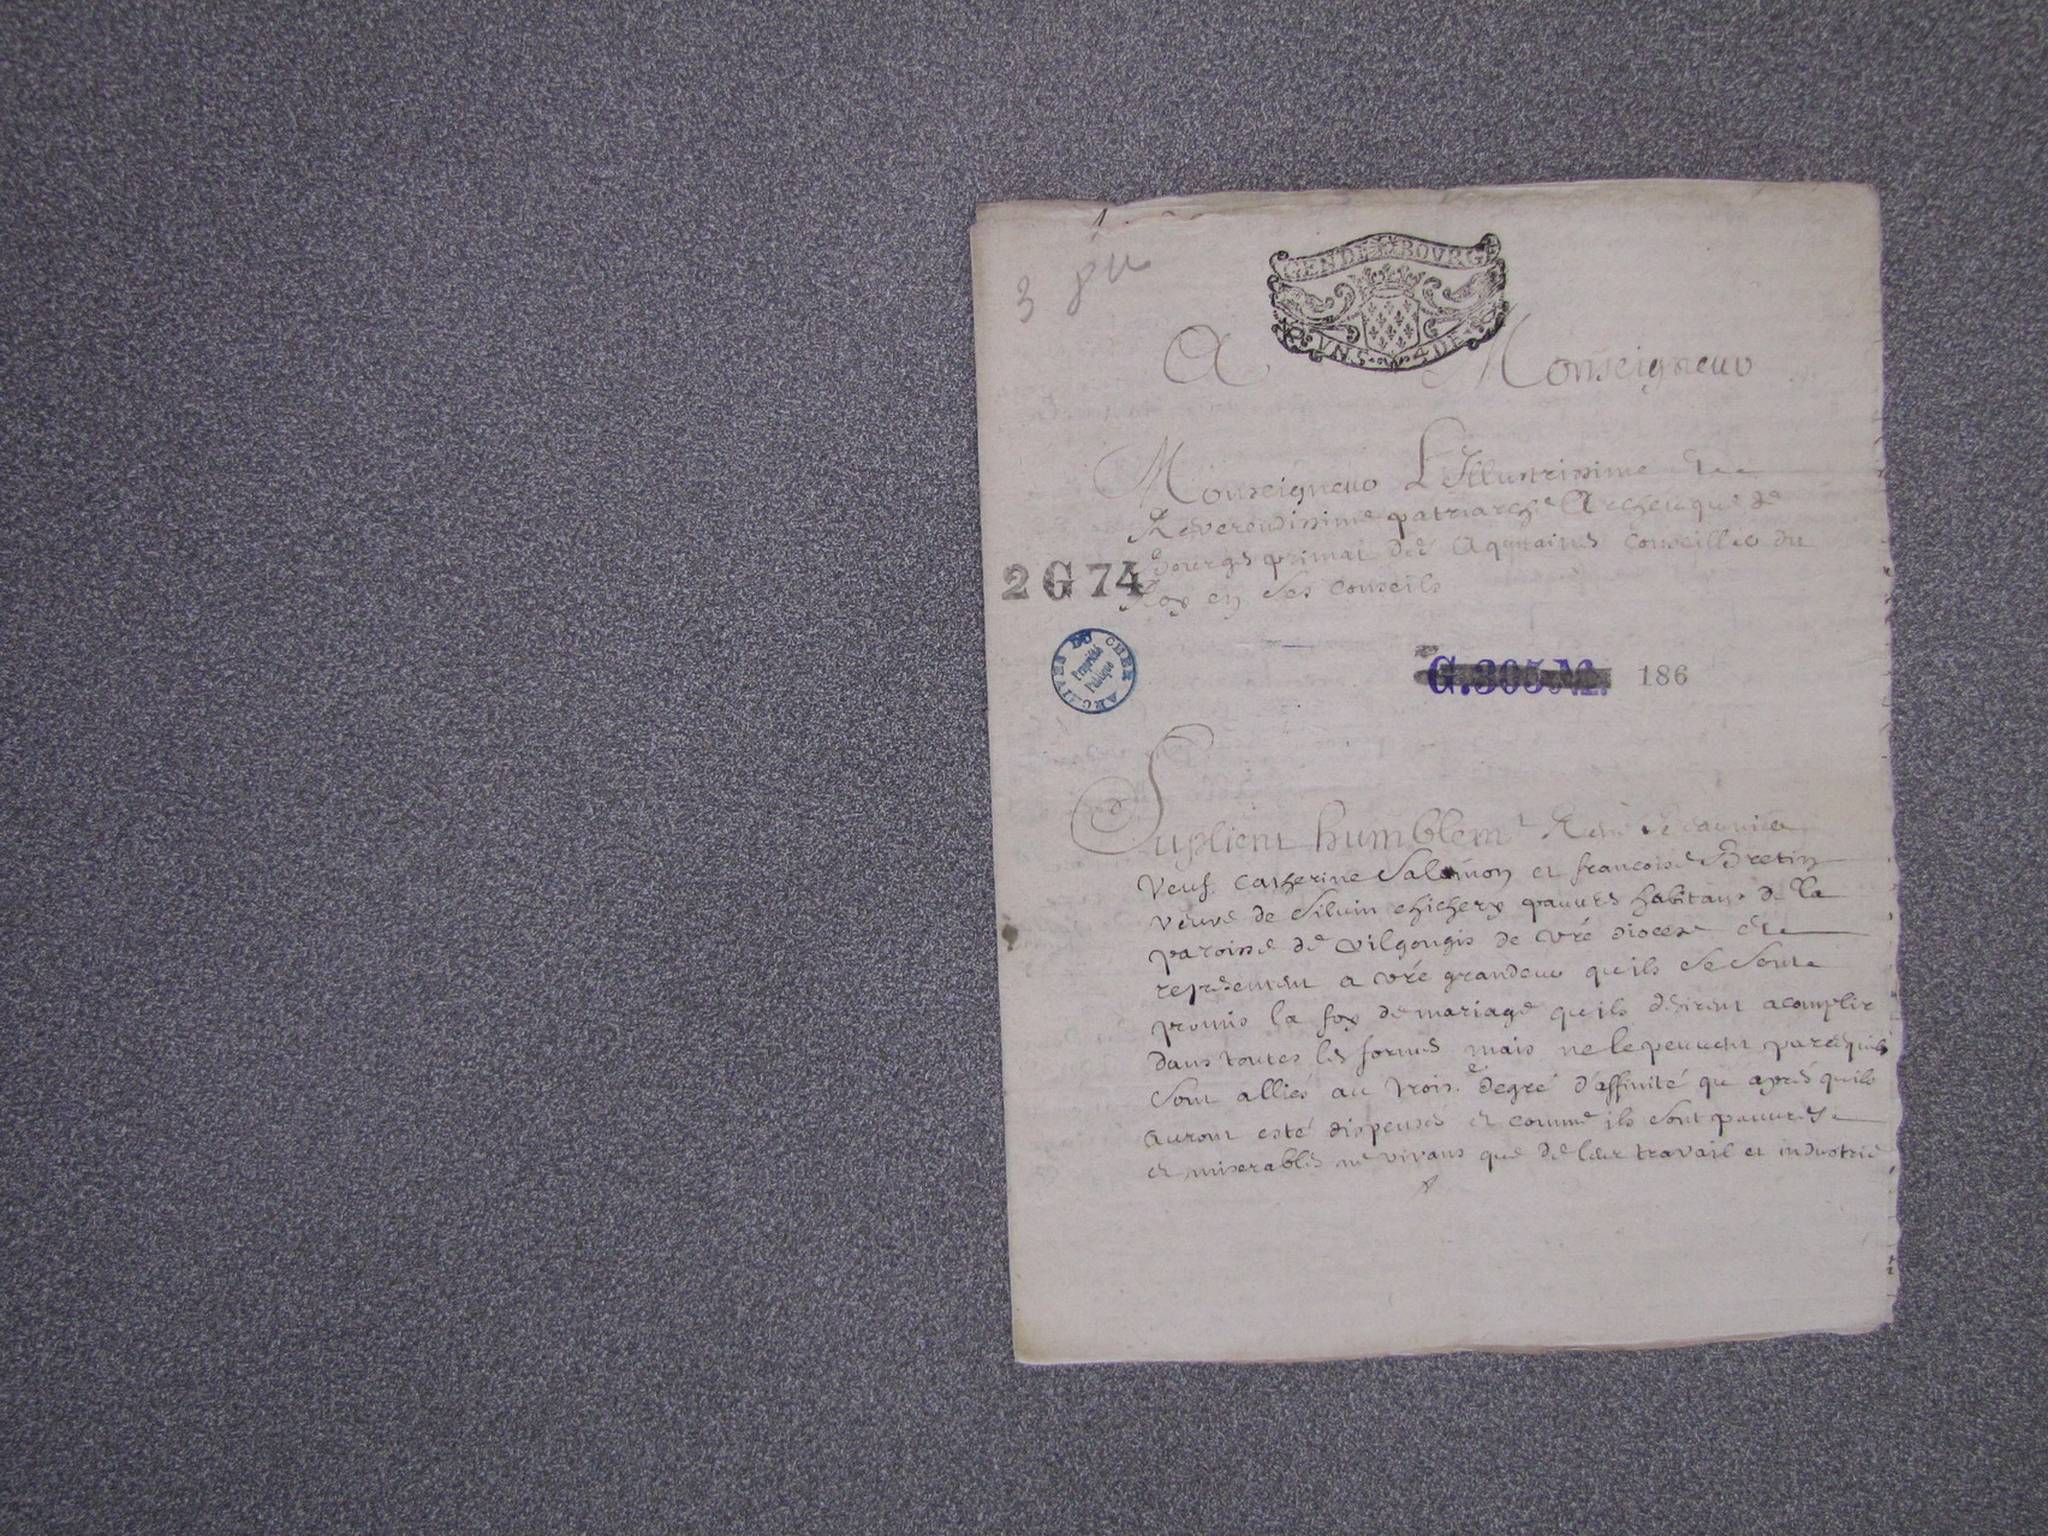 3 pu
GEN DE BOVRG
VN S 4 DE
A Monseigneur
Monseigneur L'Illustrissime Et
Reverendissime patriarche Archeuque de
Bourges primat des Aquitaines conseiller du
Roy en ses conseils
2 G 74
ARCHIVES DU CHER
Propriété
Publique
G.305 186
Suplient humblemt René
Veuf Catherine Salomon et francoise Bretin
veuve de Silvin chichery pauures habitans de la
paroisse de vilgongis de vre diocese Et
represement a vre grandeur quils se sont
promis la foy de mariage quils desirent acomplir
dans toutes les formes mais ne le peuuent parcequils
sont alliés au troise. degré d'affinité que aprés quils
auront esté dispensés et comme ils sont pauures
et miserables ne vivans que de leur travail et industrie